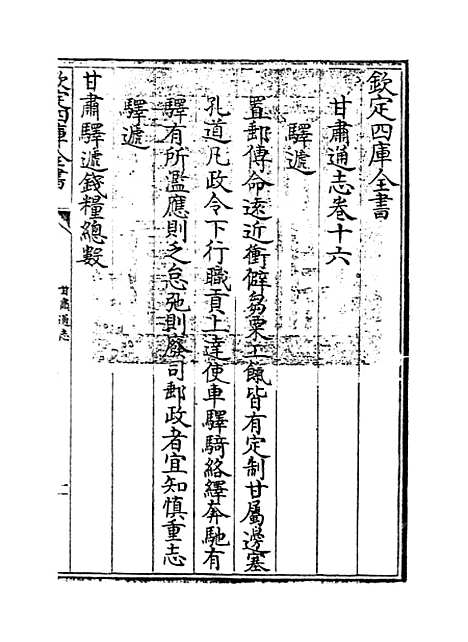 欽定四庫全書
甘肅通志卷十六
驛遞
置郵傳命遠近衝僻芻粟工餼皆有定制甘屬邊塞
孔道凡政令下行職貢上達使車驛騎絡繹奔馳有
驛有所濫應則之怠弛則廢司郵政者宜知慎重志
驛遞
甘肅驛遞錢糧總數
欽定四庫全書
甘肅通志